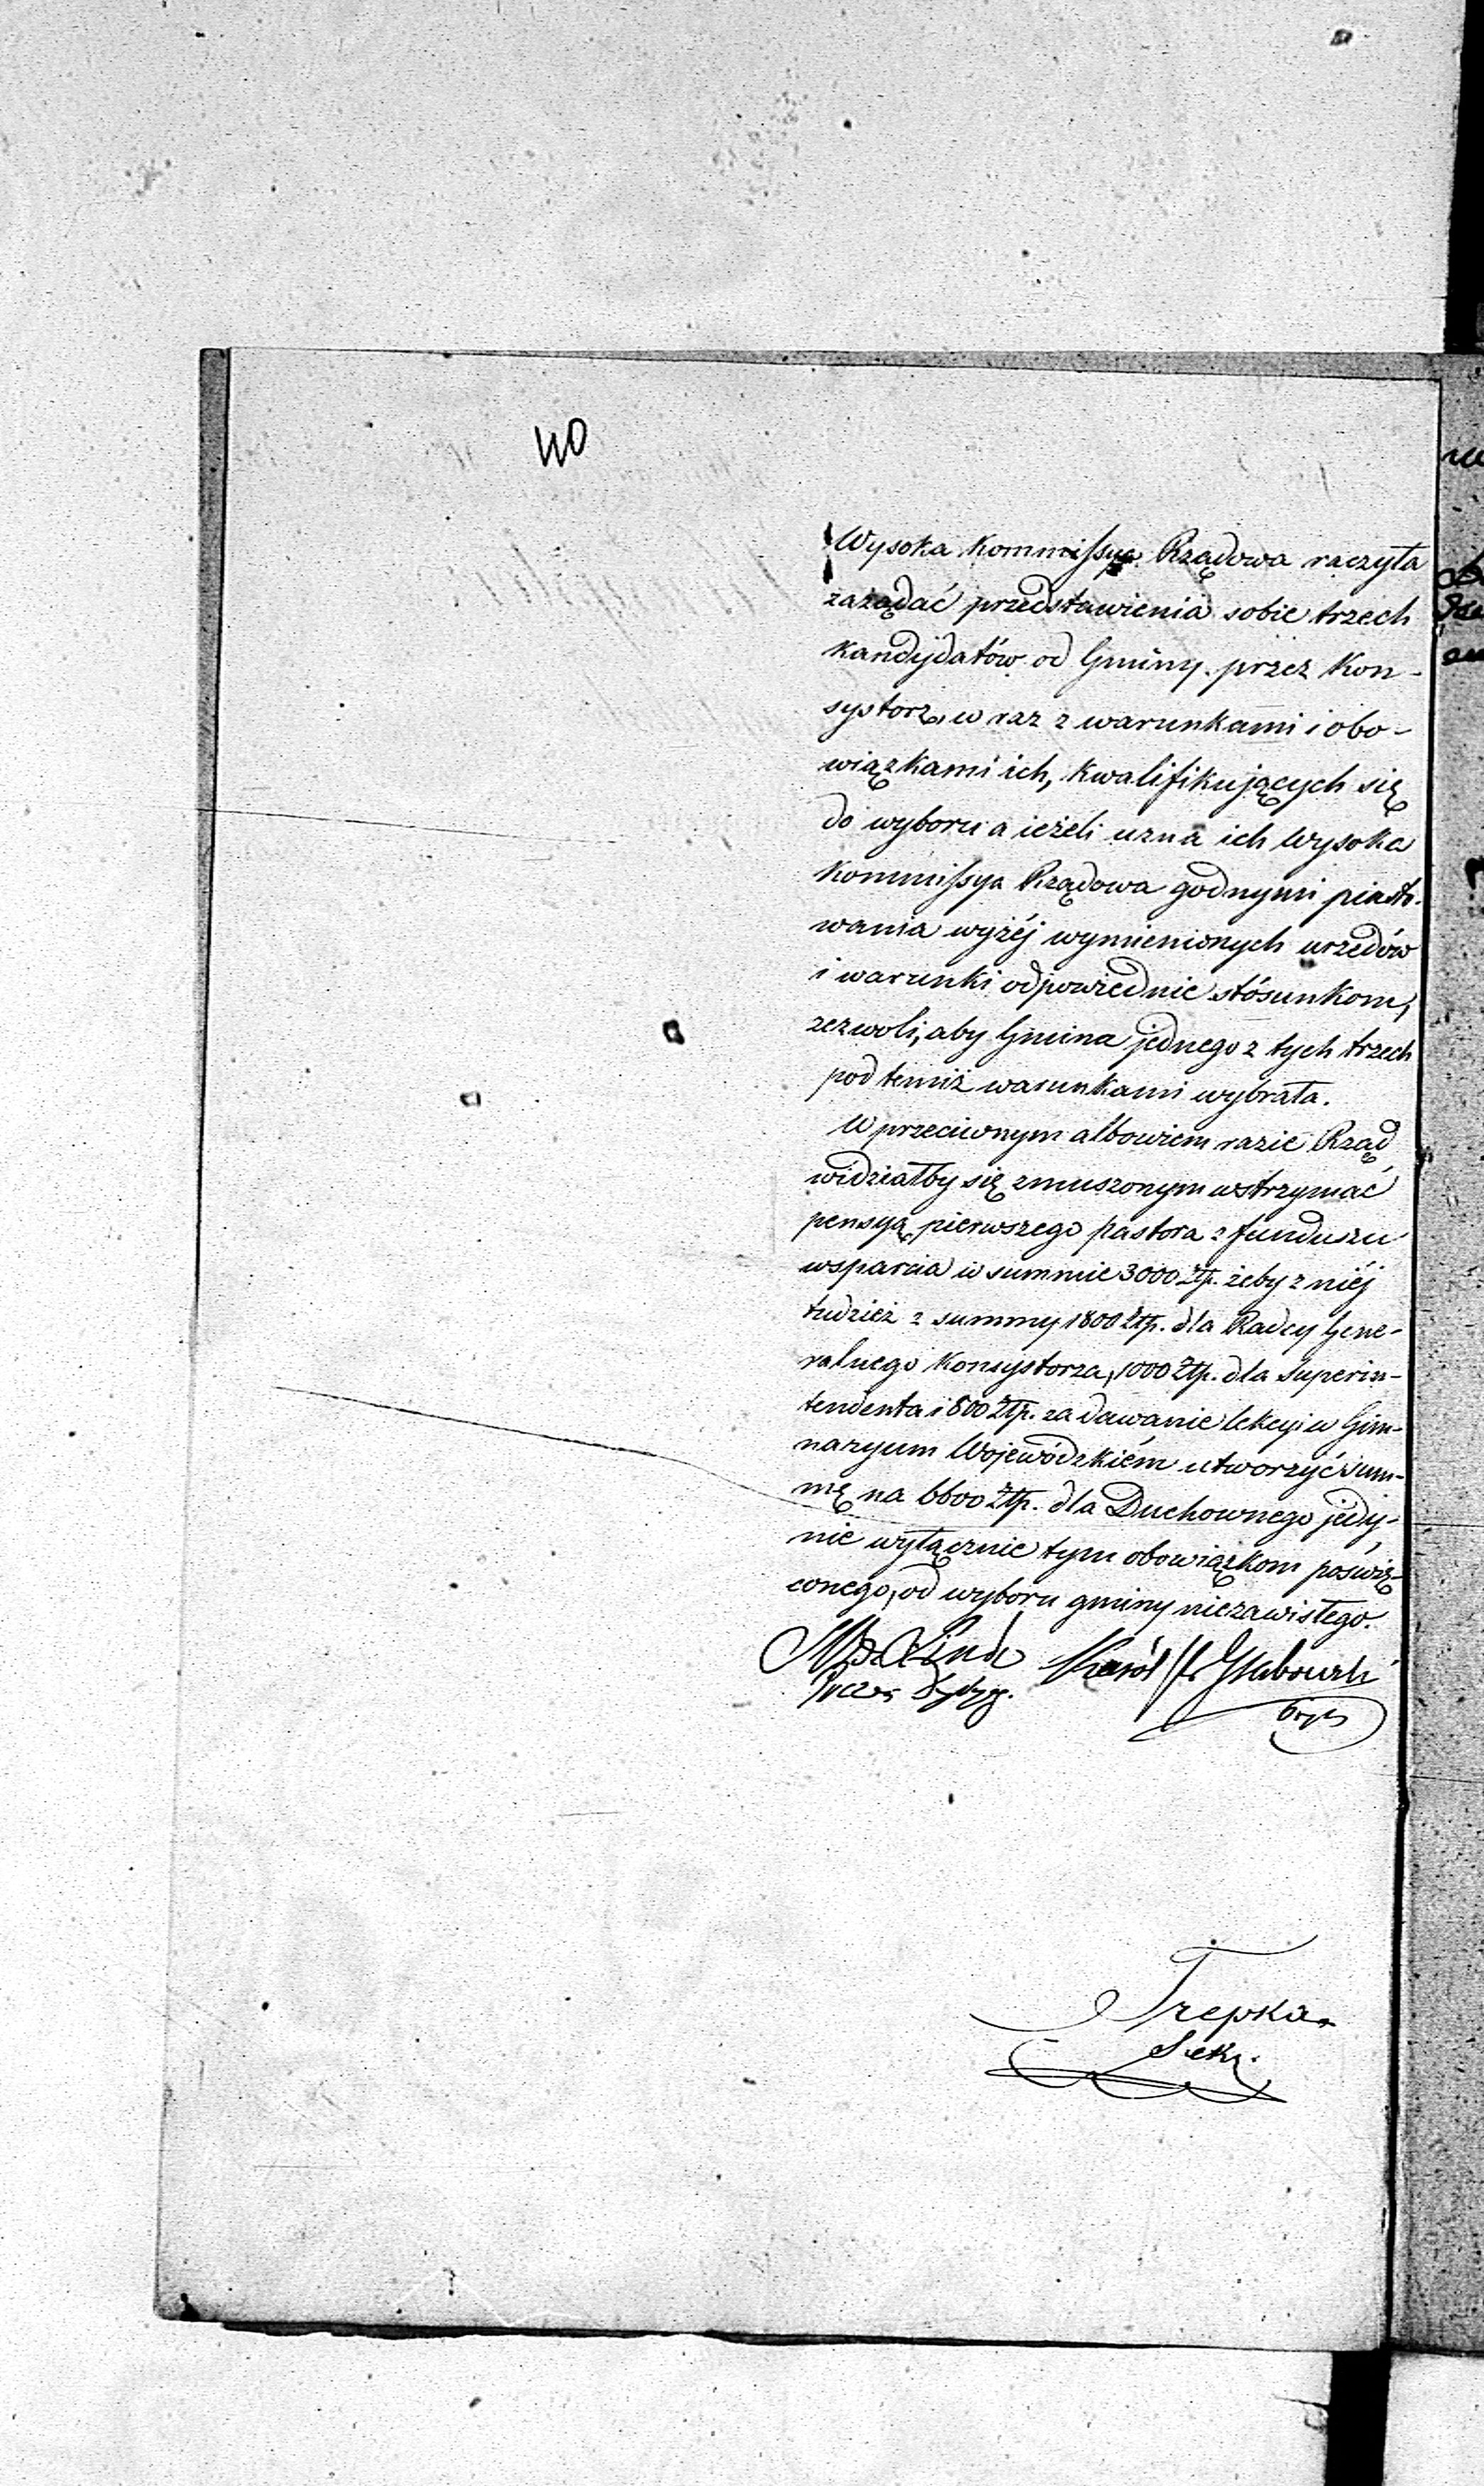 40
Wysoka Kommissya Rządowa raczyła
zażądać przedstawienia sobie trzech
kandydatów od Gminy przez Kon-
systorz, w raz z warunkami i obo-
wiązkami ich, kwalifikujących się
do wyboru a ieżeli uzna ich Wysoka
Kommissya Rządowa godnymi piasto-
wania wyżéj wymienionych urzędów
i warunki odpowiednie stósunkom,
zezwoli, aby Gmina jednego z tych trzech
pod temiż warunkami wybrała.
W przeciwnym albowiem razie Rząd
widziałby się zmuszonym wstrzymać
pensyą pierwszego pastora z funduszu
wsparcia w summie 3000 Złp. żeby z niéj
tudzież z summy 1800 Złp. dla Radcy Gene-
ralnego Konsystorza, 1000 Złp. dla Superin-
tendenta i 800 Złp. za dawanie lekcyi w Gim-
nazyum Wojewódzkiém utworzyć sum-
mę na 6600 Złp. dla Duchownego jedy-
nie wyłącznie tym obowiązkom poświę-
conego, od wyboru gminy niezawisłego.
Linde Karól Grabowski
Trepka
Sekr.